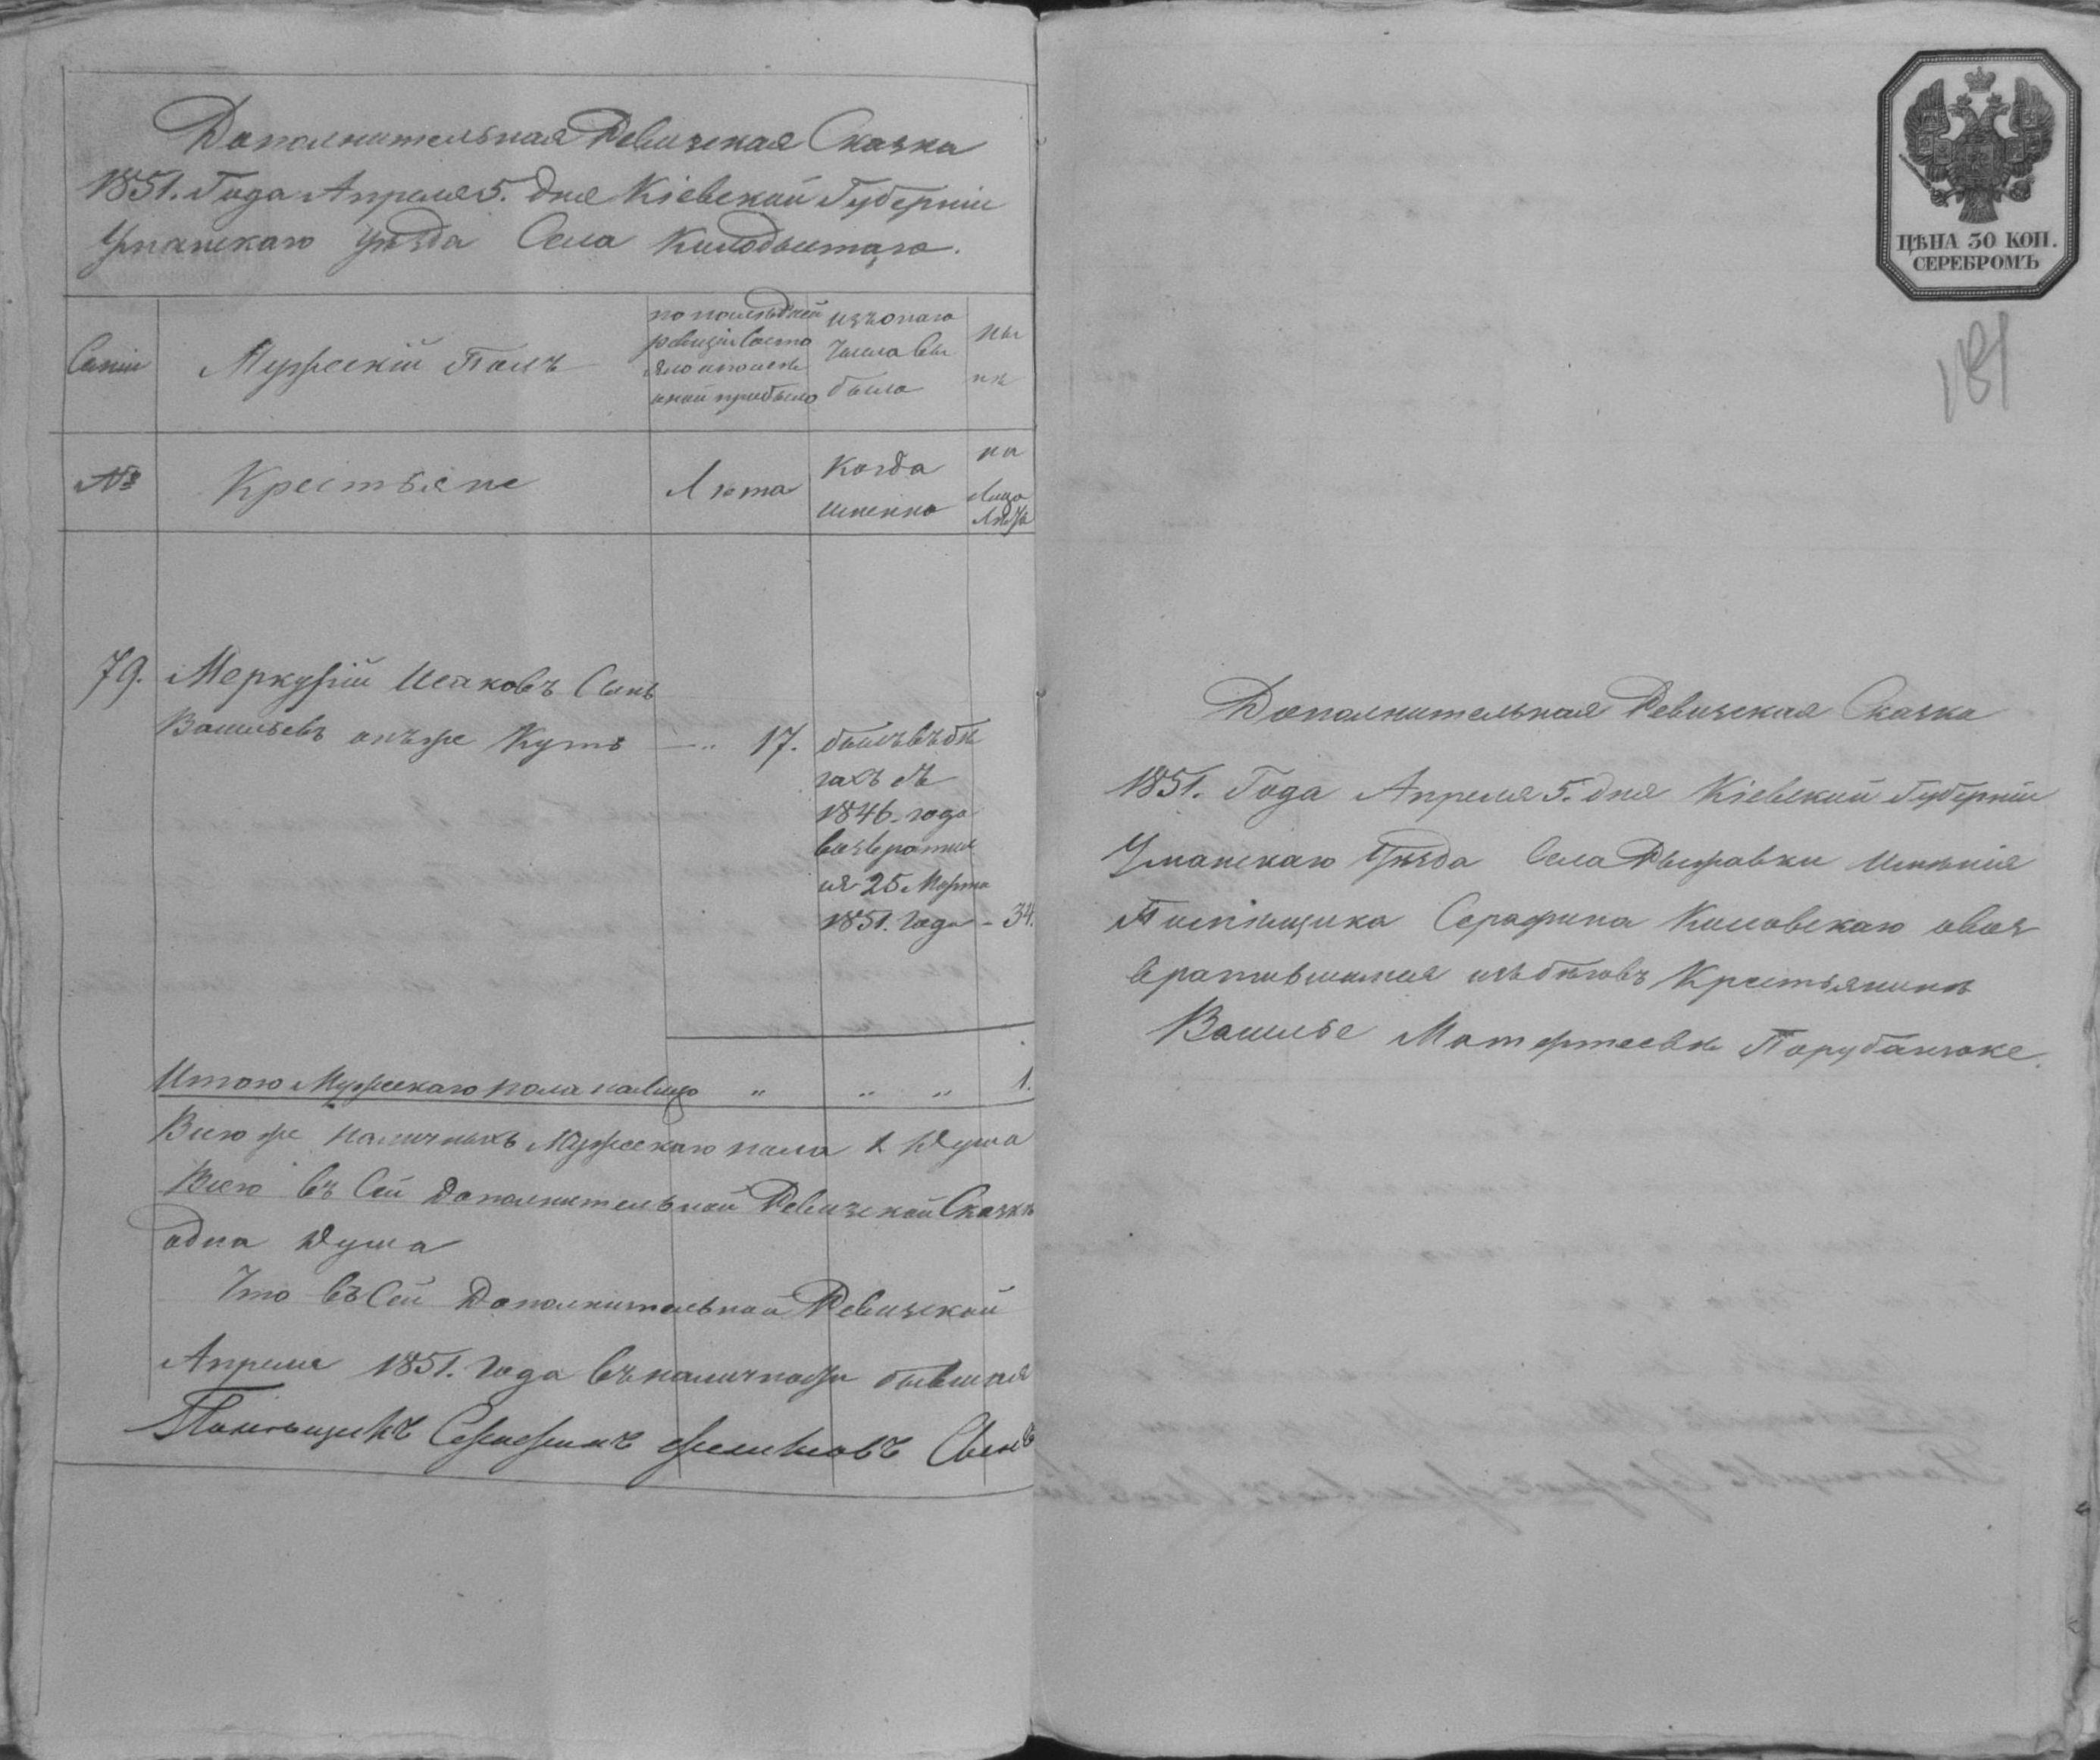 Дополнительная Ревизская Сказка
1851. Года Апреля 5. дня Кіевской Губерніи
Уманскаго уѣзда Села Кислодымтаго.
Семіи
Мужескій Полъ
по послѣдней
ревизіи состо
яло и послѣ
оной прибыло
изъ онаго
числа вы
было
ны
нѣ
№
Крестьяне
Лѣта
Когда
именно
на
лицо
Лѣта
79.
Меркурій Исаковъ Сынъ
Васильевъ онъ же Кутъ — " 17.
былъ въ бѣ
гахъ съ
1846. года
возвратил
ся 25 Марта
1851. года - 34.
Итого Мужескаго пола налицо " " " 1.
Всего же наличныхъ Мужескаго пола 1 Душа
Всего въ Сей Дополнительной Ревизской Сказкѣ
одна Душа
Что въ Сей Дополнительной Ревизской
Апреля 1851. года въ наличности бывшия
Помѣщикъ Серафинъ Феликсовъ Сынъ
ЦѢНА 30 КОП.
СЕРЕБРОМЪ
181
Дополнительная Ревизская Сказка
1851. Года Апреля 5. дня Кіевской Губерніи
Уманскаго Уѣзда Села Рыжавки Имѣнія
Помѣщика Серафина Киловскаго овоз
вратившимся изъ бѣговъ Крестьянинѣ
Василье Матфтеевѣ Порубанюке.